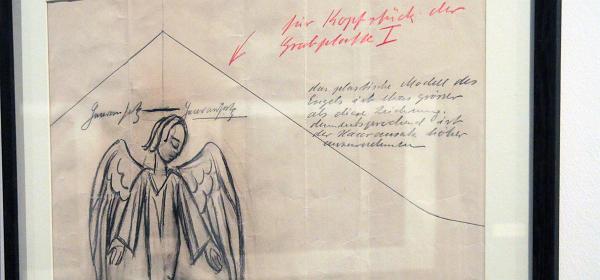 für Kopfstück der
Grabplatte I
das plastische Modell des
Engels ist etwas grösser
als diese Zeichnung.
dementsprechend ist
der Haaransatz höher
anzunehmen
Haaransatz Haaransatz